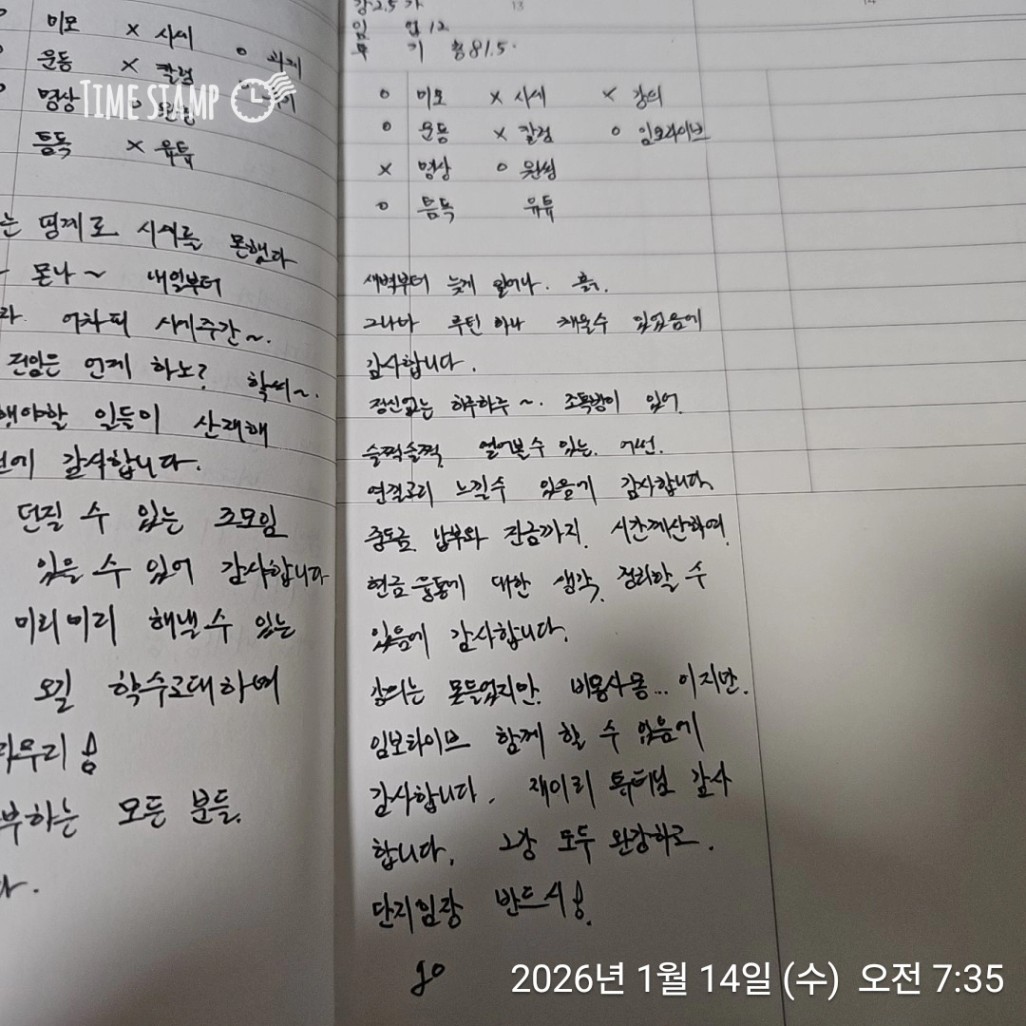 미모 × 시세 ○ 과제
운동 × 칼럼
TIME STAMP
명상
틈독 × 유튜
는 핑계로 시세를 못했다
몬나~ 내일부터
어차피 시세주간~.
전임은 언제 하노? 학씨~.
해야할 일들이 산재해
감사합니다.
던질 수 있는 조모임
있을 수 있어 감사합니다
미리미리 해낼 수 있는
오길 학수고대하며
마무리
부하는 모든 분들.
다.
13
14
강 2.5
임 업 12
부 기 총 81.5
○ 미모 × 시세 × 강의
○ 운동 × 칼럼 ○ 임보라이브
× 명상 ○ 원씽
○ 틈독 유튜
새벽부터 늦게 일어나. 흙.
그나마 루틴 하나 채울수 있었음에
감사합니다.
정신없는 하루하루~. 조톡방이 있어
슬쩍슬쩍 열어볼수 있는.
연결고리 느낄수 있음에 감사합니다.
중도금 납부와 잔금까지. 시간계산하며
현금 융통에 대한 생각. 정리할 수
있음에 감사합니다.
강의는 못들었지만. 비몽사몽... 이지만.
임보라이브 함께 할 수 있음에
감사합니다. 재이리 튜터님 감사
합니다. 그강 모두 완강하고.
단지임장 반드시
go
2026년 1월 14일 (수) 오전 7:35